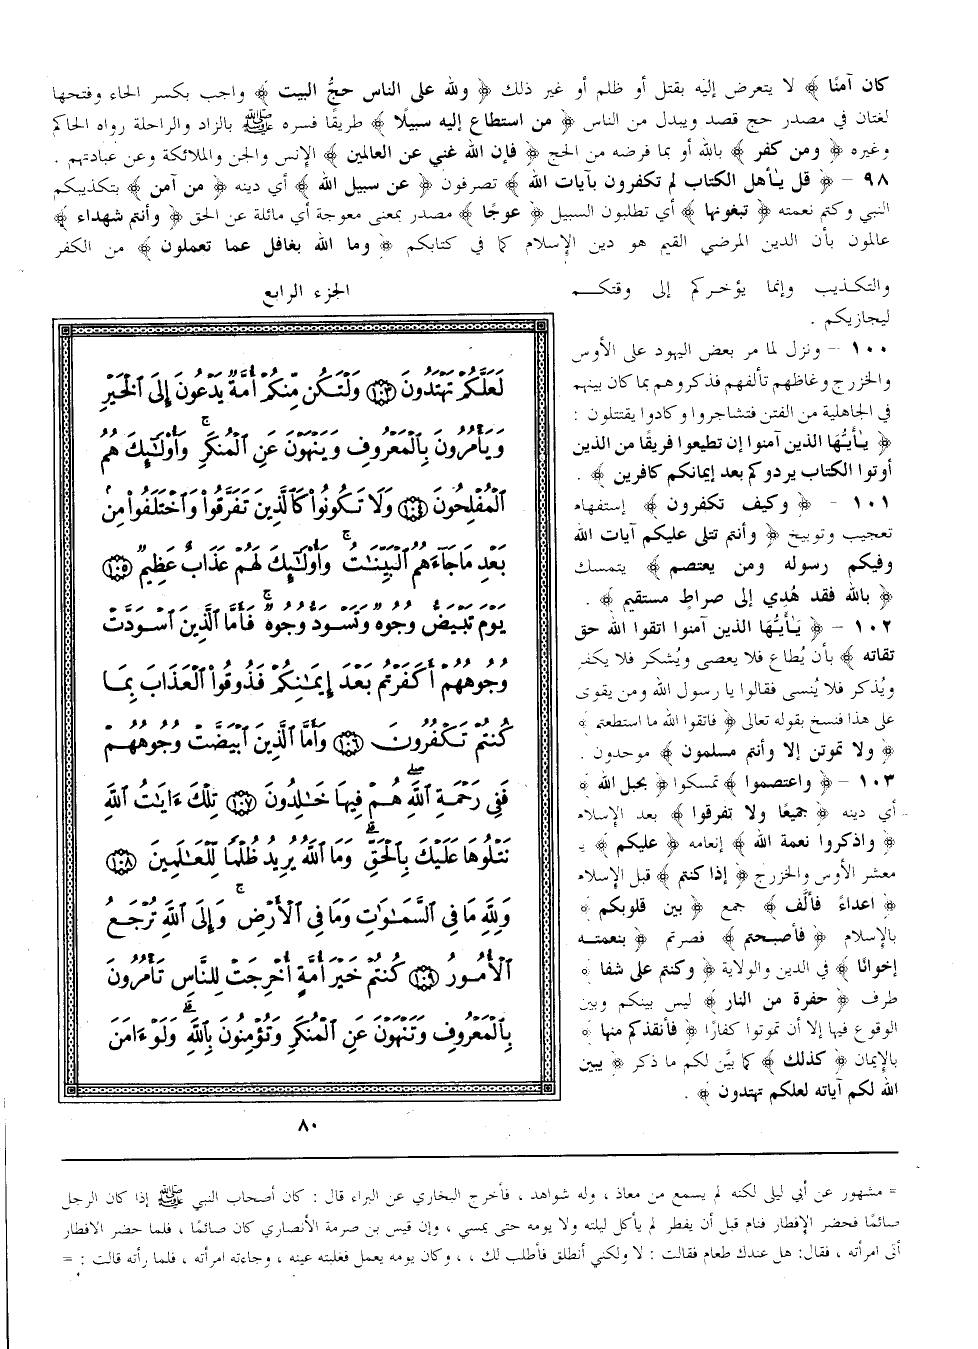 كان آمنًا ﴾ لا يتعرض إليه بقتل أو ظلم أو غير ذلك ﴿ ولله على الناس حجُّ البيت ﴾ واجب بكسر الحاء وفتحها
لغتان في مصدر حج قصد ويبدل من الناس ﴿ من استطاع إليه سبيلًا ﴾ طريقًا فسره ﷺ بالزاد والراحلة رواه الحاكم
وغيره ﴿ ومن كفر ﴾ بالله أو بما فرضه من الحج ﴿ فإن الله غني عن العالمين ﴾ الإنس والجن والملائكة وعن عبادتهم .
٩٨ - ﴿ قل يـأهل الكتاب لم تكفرون بآيات الله ﴾ تصرفون ﴿ عن سبيل الله ﴾ أي دينه ﴿ من آمن ﴾ بتكذيبكم
النبي وكتم نعمته ﴿ تبغونها ﴾ أي تطلبون السبيل ﴿ عوجًا ﴾ مصدر بمعنى معوجة أي مائلة عن الحق ﴿ وأنتم شهداء ﴾
عالمون بأن الدين المرضي القيم هو دين الإسلام كما في كتابكم ﴿ وما الله بغافل عما تعملون ﴾ من الكفر
والتكذيب وإنما يؤخركم إلى وقتكم
ليجازيكم .
١٠٠ - ونزل لما مر بعض اليهود على الأوس
والخزرج وغاظهم تألفهم فذكروهم بما كان بينهم
في الجاهلية من الفتن فتشاجروا وكادوا يقتتلون :
﴿ يـأيـها الذين آمنوا إن تطيعوا فريقًا من الذين
أوتوا الكتاب يردوكم بعد إيمانكم كافرين ﴾ .
١٠١ - ﴿ وكيف تكفرون ﴾ إستفهام
تعجيب وتوبيخ ﴿ وأنتم تتلى عليكم آيات الله
وفيكم رسوله ومن يعتصم ﴾ يتمسك
﴿ بالله فقد هُدِي إلى صراطٍ مستقيم ﴾ .
١٠٢ - ﴿ يـأيـها الذين آمنوا اتقوا الله حق
تقاته ﴾ بأن يُطاع فلا يعصى ويُشكر فلا يكفر
ويُذكر فلا يُنسى فقالوا يا رسول الله ومن يقوى
على هذا فنسخ بقوله تعالى ﴿ فاتقوا الله ما استطعتم ﴾
﴿ ولا تموتن إلا وأنتم مسلمون ﴾ موحدون .
١٠٣ - ﴿ واعتصموا ﴾ تمسكوا ﴿ بحبل الله ﴾
أي دينه ﴿ جميعًا ولا تفرقوا ﴾ بعد الإسلام
﴿ واذكروا نعمة الله ﴾ إنعامه ﴿ عليكم ﴾ يا
معشر الأوس والخزرج ﴿ إذا كنتم ﴾ قبل الإسلام
﴿ اعداءً فألَّف ﴾ جمع ﴿ بين قلوبكم ﴾
بالإسلام ﴿ فأصبحتم ﴾ فصرتم ﴿ بنعمته
إخوانًا ﴾ في الدين والولاية ﴿ وكنتم على شفا ﴾
طرف ﴿ حفرة من النار ﴾ ليس بينكم وبين
الوقوع فيها إلا أن تموتوا كفارًا ﴿ فأنقذكم منها ﴾
بالإيمان ﴿ كذلك ﴾ كما بيَّن لكم ما ذكر ﴿ يبين
الله لكم آياته لعلكم تهتدون ﴾ .
الجزء الرابع
لَعَلَّكُمْ تَهْتَدُونَ ١٠٣ وَلْتَكُن مِّنكُمْ أُمَّةٌ يَدْعُونَ إِلَى ٱلْخَيْرِ
وَيَأْمُرُونَ بِٱلْمَعْرُوفِ وَيَنْهَوْنَ عَنِ ٱلْمُنكَرِ ۚ وَأُو۟لَـٰٓئِكَ هُمُ
ٱلْمُفْلِحُونَ ١٠٤ وَلَا تَكُونُوا۟ كَٱلَّذِينَ تَفَرَّقُوا۟ وَٱخْتَلَفُوا۟ مِنۢ
بَعْدِ مَا جَآءَهُمُ ٱلْبَيِّنَـٰتُ ۚ وَأُو۟لَـٰٓئِكَ لَهُمْ عَذَابٌ عَظِيمٌ ١٠٥
يَوْمَ تَبْيَضُّ وُجُوهٌ وَتَسْوَدُّ وُجُوهٌ ۚ فَأَمَّا ٱلَّذِينَ ٱسْوَدَّتْ
وُجُوهُهُمْ أَكَفَرْتُم بَعْدَ إِيمَـٰنِكُمْ فَذُوقُوا۟ ٱلْعَذَابَ بِمَا
كُنتُمْ تَكْفُرُونَ ١٠٦ وَأَمَّا ٱلَّذِينَ ٱبْيَضَّتْ وُجُوهُهُمْ
فَفِى رَحْمَةِ ٱللَّهِ ۖ هُمْ فِيهَا خَـٰلِدُونَ ١٠٧ تِلْكَ ءَايَـٰتُ ٱللَّهِ
نَتْلُوهَا عَلَيْكَ بِٱلْحَقِّ ۗ وَمَا ٱللَّهُ يُرِيدُ ظُلْمًا لِّلْعَـٰلَمِينَ ١٠٨
وَلِلَّهِ مَا فِى ٱلسَّمَـٰوَٰتِ وَمَا فِى ٱلْأَرْضِ ۚ وَإِلَى ٱللَّهِ تُرْجَعُ
ٱلْأُمُورُ ١٠٩ كُنتُمْ خَيْرَ أُمَّةٍ أُخْرِجَتْ لِلنَّاسِ تَأْمُرُونَ
بِٱلْمَعْرُوفِ وَتَنْهَوْنَ عَنِ ٱلْمُنكَرِ وَتُؤْمِنُونَ بِٱللَّهِ ۗ وَلَوْ ءَامَنَ
٨٠
= مشهور عن أبي ليلى لكنه لم يسمع من معاذ ، وله شواهد ، فأخرج البخاري عن البراء قال : كان أصحاب النبي ﷺ إذا كان الرجل
صائمًا فحضر الإفطار فنام قبل أن يفطر لم يأكل ليلته ولا يومه حتى يمسي ، وإن قيس بن صرمة الأنصاري كان صائمًا ، فلما حضر الافطار
أتى امرأته ، فقال: هل عندك طعام فقالت : لا ولكني أنطلق فأطلب لك ، ، وكان يومه يعمل فغلبته عينه ، وجاءته امرأته ، فلما رأته قالت : =